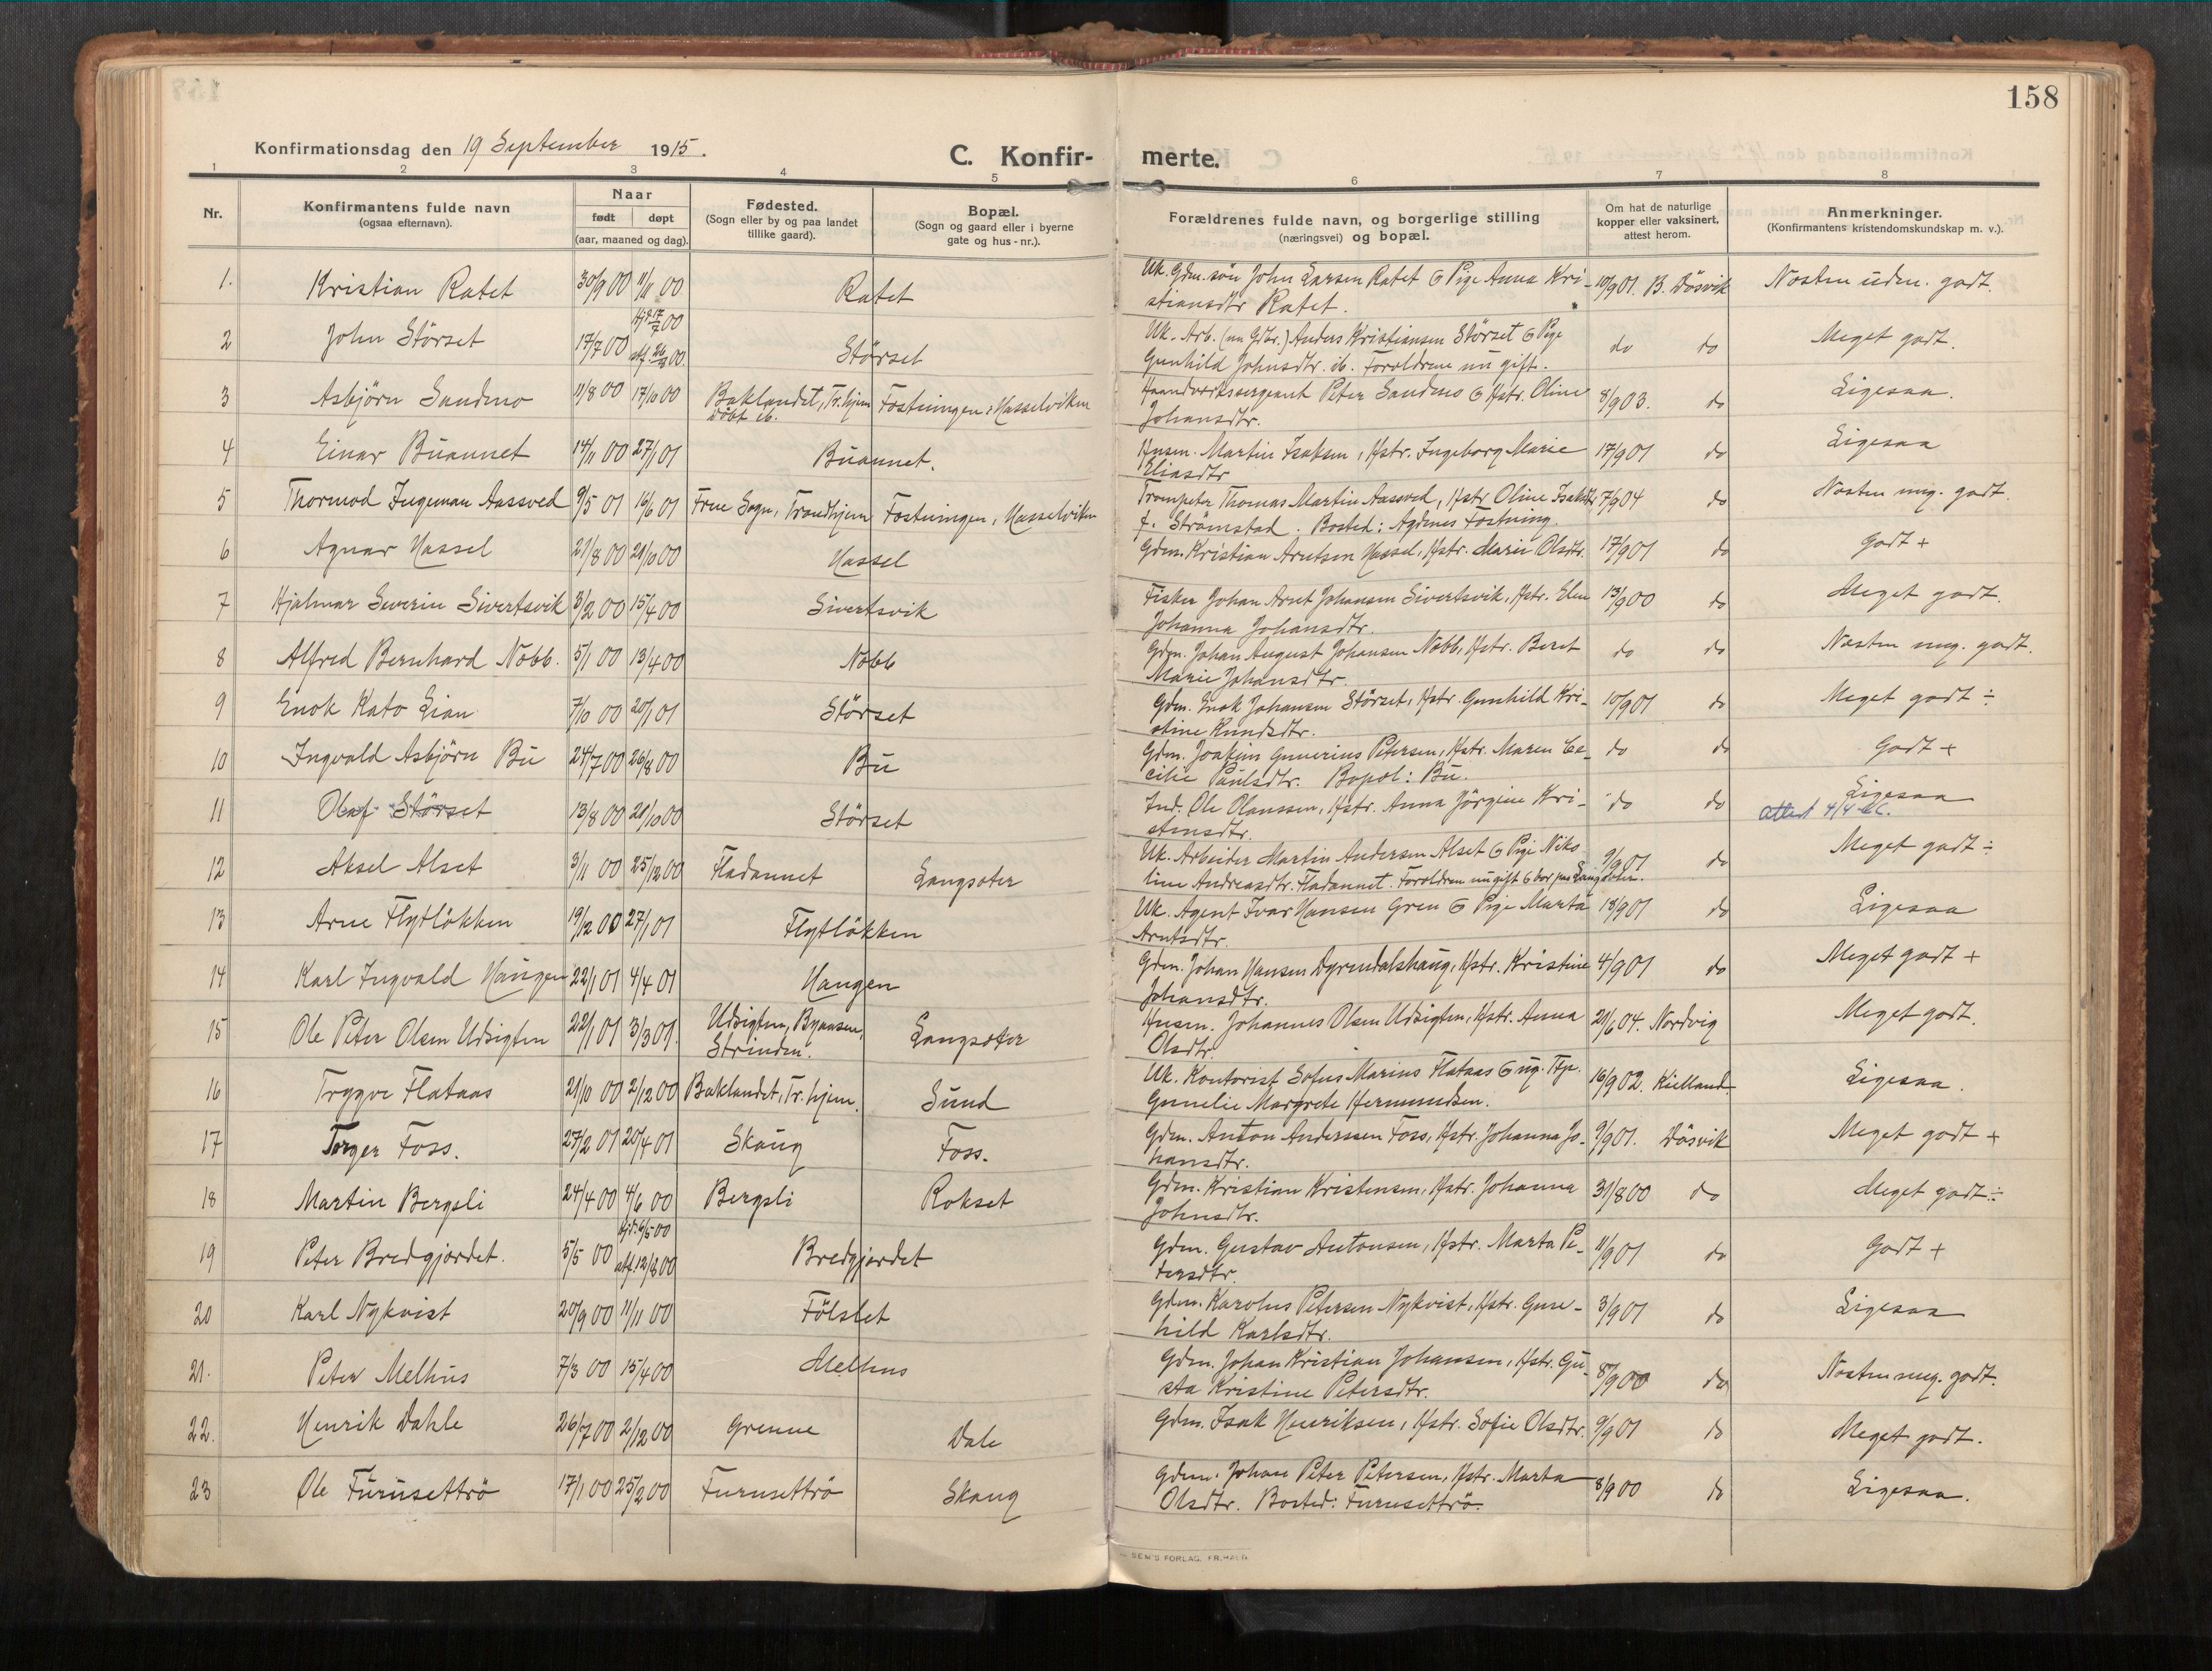 158
Konfirmationsdag den 19 September 1915.
C. Konfir- merte.
1 2 3 4 5 6 7 8
Nr.
Konfirmantens fulde navn
(ogsaa efternavn).
Naar
født døpt
(aar, maaned og dag).
Fødested.
(Sogn eller by og paa landet
tillike gaard).
Bopæl.
(Sogn og gaard eller i byerne
gate og hus-nr.).
Forældrenes fulde navn, og borgerlige stilling
(næringsvei) og bopæl.
Om hat de naturlige
kopper eller vaksinert,
attest herom.
Anmerkninger.
(Konfirmantens kristendomskundskap m. v.).
1. Kristian Ratet 30/9 00 11/11 00 Ratet Uk. Gdm. søn John Larsen Ratet & Pige Anna Kri- 10/9 01. B. Dösvik Næsten udm. godt.
stiansdtr Ratet.
2 John Störset 17/7 00 hjd. 17/7 00 Störset Uk. Arb. (nu Gdbr.) Anders Kristiansen Störset & Pige do do Meget godt.
stf. 26/8 00. Gunhild Johnsdtr. ib. Foræl­drene nu gift.
3 Asbjörn Sandmo 11/8 00 17/10 00 Baklandet, Tr.hjem Fæstningen : Hasselviken Haandverkssergeant Peter Sandmo & Hstr. Oline 8/9 03. do Ligesaa.
döbt ib. Johansdtr.
4 Einar Büannet 14/11 00 27/1 01 Büannet. Husm. Martin Isaksen, Hstr. Ingeborg Marie 17/9 01 do Ligesaa
Eliasdtr
5 Thormod Ingeman Aassved 9/5 01 16/6 01 Frue Sogn, Trondhjem Fæstningen, Hasselviken Trompeter Thomas Martin Aassved, Hstr Oline Isaksdtr 7/9 04 do Næsten mg. godt.
f. Strömstad. Bosted: Agdenes Fæstning.
6 Agnar Hassel 21/8 00 21/10 00 Hassel Gdm. Kristian Arntsen Hassel, Hstr. Marie Olsdtr. 17/9 01 do Godt +
7 Hjalmar Severin Sivertsvik 3/2 00 15/4 00 Sivertsvik Fisker Johan Arnt Johansen Sivertsvik, Hstr. Elen 13/9 00 do Meget godt.
Johanna Johansdtr.
8 Alfred Bernhard Nöbb. 5/1 00 13/4 00 Nöbb Gdm. Johan August Johansen Nöbb, Hstr. Beret do do Næsten mg. godt.
Marie Johansdtr.
9 Enok Kato Lian 7/10 00 20/1 01 Störset Gdm. Enok Johansen Störset, Hstr. Gunhild Kri- 10/9 01 do Meget godt ÷
stine Knudsdtr.
10 Ingvald Asbjörn Bü 24/7 00 26/8 00 Bü Gdm. Joakim Gunerius Petersen, Hstr. Maren Ce- do do Godt +
cilie Paulsdtr. Bopæl: Bü.
11 Olaf Störset 13/8 00 21/10 00 Störset Ind. Ole Olaussen, Hstr. Anna Jörgine Kri- do do Ligesaa
stensdtr. attest 4/4
12 Aksel Alset 3/11 00 25/12 00 Fladannet Langsæter Uk. Arbeider Martin Andersen Alset & Pige Niko- 9/9 01 do Meget godt ÷
line Andreasdtr. Fladannet. Forældrene nu gift & bor paa Langsæter.
13 Arne Flytlökken 19/12 00 27/1 01 Flytlökken Uk. Agent Ivar Hansen Gren & Pige Marta 18/9 01 do Ligesaa
Arntsdtr.
14 Karl Ingvald Haugen 22/1 01 4/4 01 Haugen Gdm. Johan Hansen Dyrendalshaug, Hstr. Kristine 4/9 01 do Meget godt +
Johansdtr.
15 Ole Peter Olsen Udsigten 22/1 01 3/3 01. Udsigten, Bynæsen, Langsæter Husm. Johannes Olsen Udsigten, Hstr. Anna 21/6 04. Nordvig Meget godt.
Strinden. Olsdtr.
16 Trygve Flataas 21/10 00 2/12 00 Baklandet, Tr.hjem. Sund Uk. Kontorist Sofus Marius Flataas & ug. Tjp. 16/9 02. Kielland Ligesaa.
Gunelie Margrete Hermundsen.
17 Torger Foss. 27/2 01 20/4 01 Skaug Foss. Gdm. Anton Anderssen Foss, Hstr. Johanna Jo- 9/9 01. Dösvik Meget godt +
hansdtr.
18 Martin Bergsli 24/4 00 4/6 00 Bergsli Rokset Gdm. Kristian Kristensen, Hstr. Johanna 31/8 00 do Meget godt ÷
Johnsdtr.
19 Peter Bredgjordet. 5/5 00 hjd. 6/5 00 Bredgjordet Gdm. Gustav Antonsen, Hstr. Marta Pe- 11/9 01 do Godt +
stf. 12/8 00 tersdtr.
20 Karl Nykvist 20/9 00 11/11 00 Fölstet Gdm. Karolus Petersen Nykvist, Hstr. Gune- 3/9 01 do Ligesaa
hild Karlsdtr.
21. Peter Melhus 7/3 00 15/4 00 Melhus Gdm. Johan Kristian Johansen, Hstr. Gu- 8/9 00 do Næsten mg. godt.
sta Kristine Petersdtr.
22. Henrik Dahle 26/7 00 2/12 00 Grenne Dale Gdm. Isak Henriksen, Hstr. Sofie Olsdtr. 9/9 01 do Meget godt.
23 Ole Furusettrö 17/1 00 25/2 00 Furusettrö Skaug Gdm. Johan Peter Petersen, Hstr. Marta 8/9 00 do Ligesaa.
Olsdtr. Bosted: Furusettrö.
SEM'S FORLAG, FR.HALD